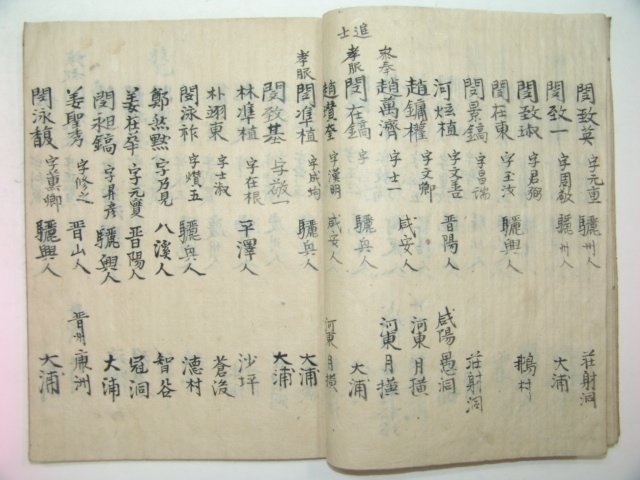 閔致英 字元重 驪州人 莊射洞
閔致一 字周敬 驪州人 大浦
閔致琡 字君弼 鵝村
閔在東 字玉汝 驪興人
閔景鎬 字昌瑞 莊射洞
河炫植 字文善 晋陽人 咸陽愚洞
趙鏞權 字文卿 咸安人 河東月橫
參奉
趙萬濟 字士一 河東月橫
追士
孝服
閔在鎬 驪興人 大浦
趙贊奎 字漢明 咸安人 河東月橫
孝服
閔准植 字成均 驪興人 大浦
閔致基 字敬一 大浦
林準植 字在根 平澤人 沙坪
朴翊東 字士淑 蒼後
閔泳祚 字燦五 驪興人 德村
鄭然黙 字乃見 八溪人 智谷
姜在莘 字元寶 晋陽人 冠洞
閔昶鎬 字昇彦 驪興人 大浦
姜聖秀 字修之 晋山人 晋州康洲
閔泳馥 字薰卿 驪興人 大浦